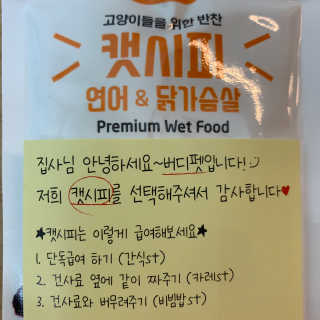 고양이들을 위한 반찬
캣시피
연어 & 닭가슴살
Premium Wet Food
집사님 안녕하세요~버디펫입니다!:)
저희 캣시피를 선택해주셔서 감사합니다♥
★캣시피는 이렇게 급여해보세요★
1. 단독급여 하기 (간식st)
2. 건사료 옆에 같이 짜주기 (카레st)
3. 건사료와 버무려주기 (비빔밥st)